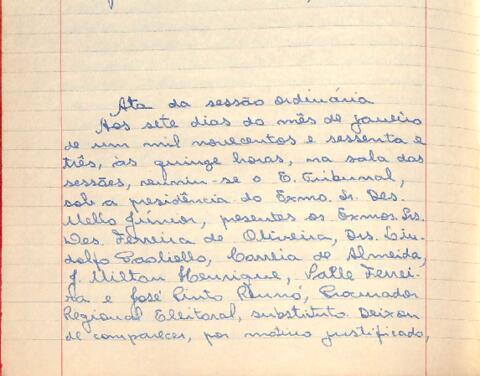 Ata da sessão ordinária
Aos sete dias do mês de janeiro
de um mil novecentos e sessenta e
três, às quinze horas, na sala das
sessões, reuniu-se o E. Tribunal,
sob a presidência do Exmo. Sr. Des.
Mello Júnior, presentes os Exmos. Srs.
Des. Ferreira de Oliveira, Drs. Lin-
dolfo Paoliello, Correia de Almeida,
J. Milton Henrique, Valle Ferrei-
ra e José Pinto Renó, Procurador
Regional Eleitoral, substituto. Deixou
de comparecer, por motivo justificado,